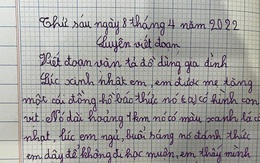 Thứ sáu ngày 8 tháng 4 năm 2022
Luyện viết đoạn
Viết đoạn văn tả đồ dùng gia đình
Lúc sinh nhật em, em được mẹ tặng
một cái đồng hồ báo thức nó tạc hình con
vịt. Nó dài khoảng 1km nó có màu xanh lá cây
nhạt, lúc em ngủ, buổi sáng nó đánh thức
em dậy để không đi học muộn, em thấy mình